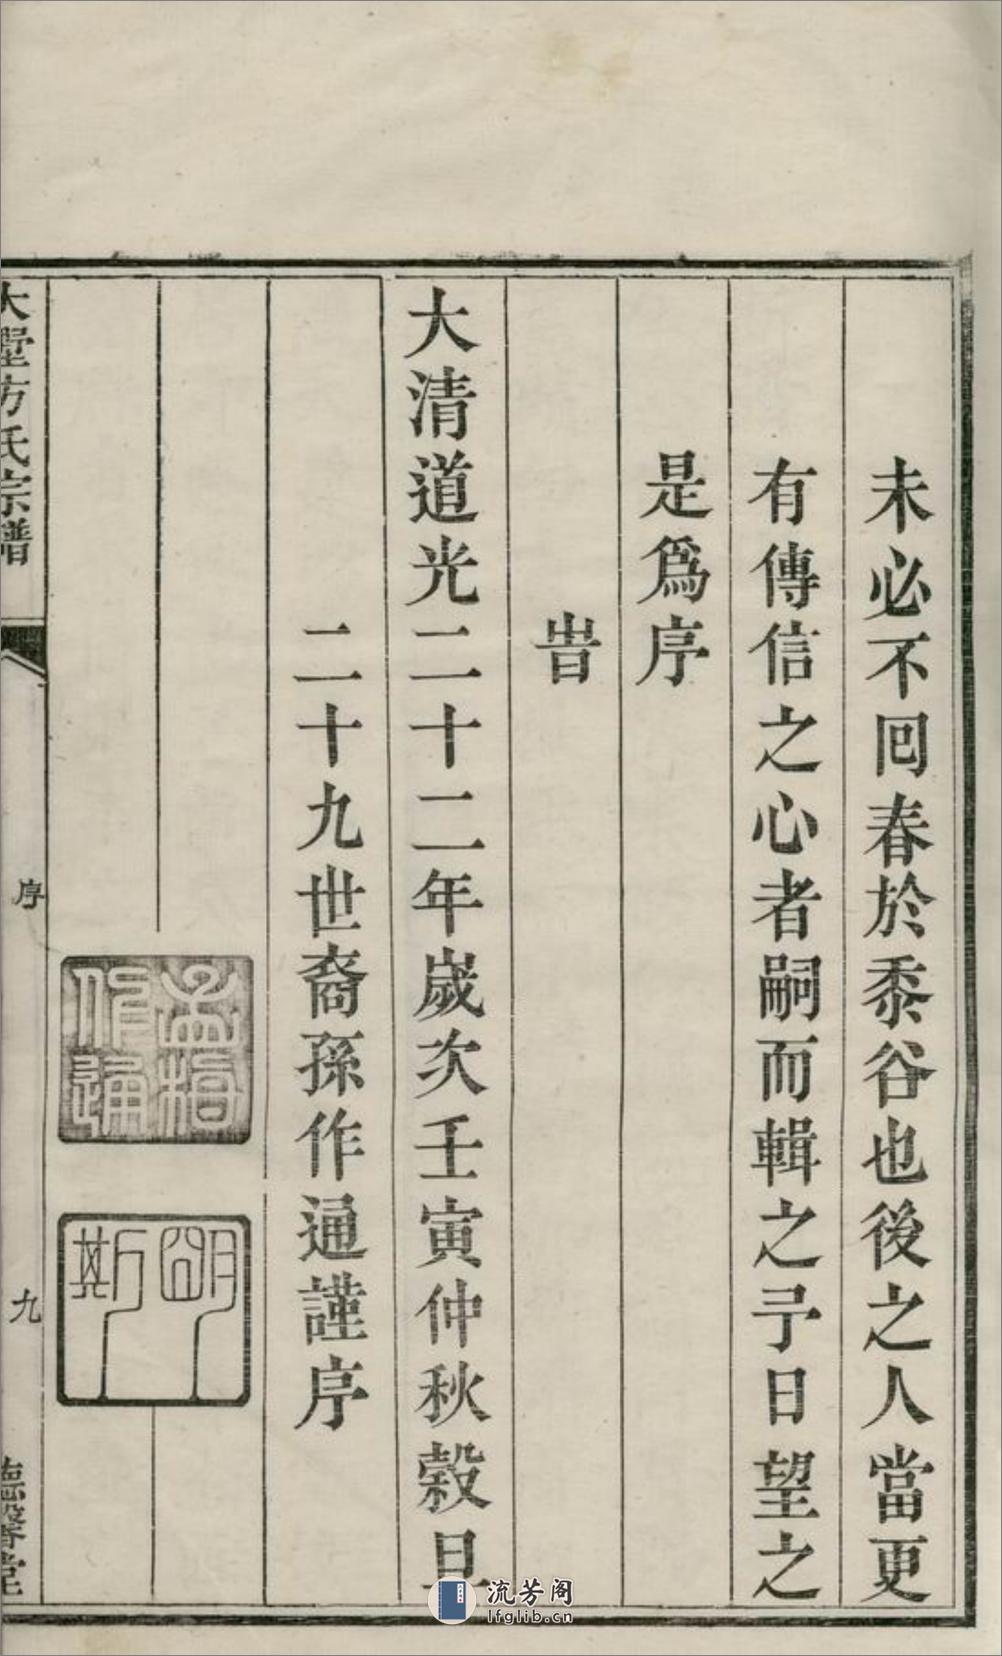 未必不回春於黍谷也後之人當更
有傳信之心者嗣而輯之予日望之
是爲序
旹
大清道光二十二年歲次壬寅仲秋穀旦
二十九世裔孫作通謹序
孟
作通
明
斯
大墅方氏宗譜
序
九
德馨堂
流芳阁
lfglib.cn